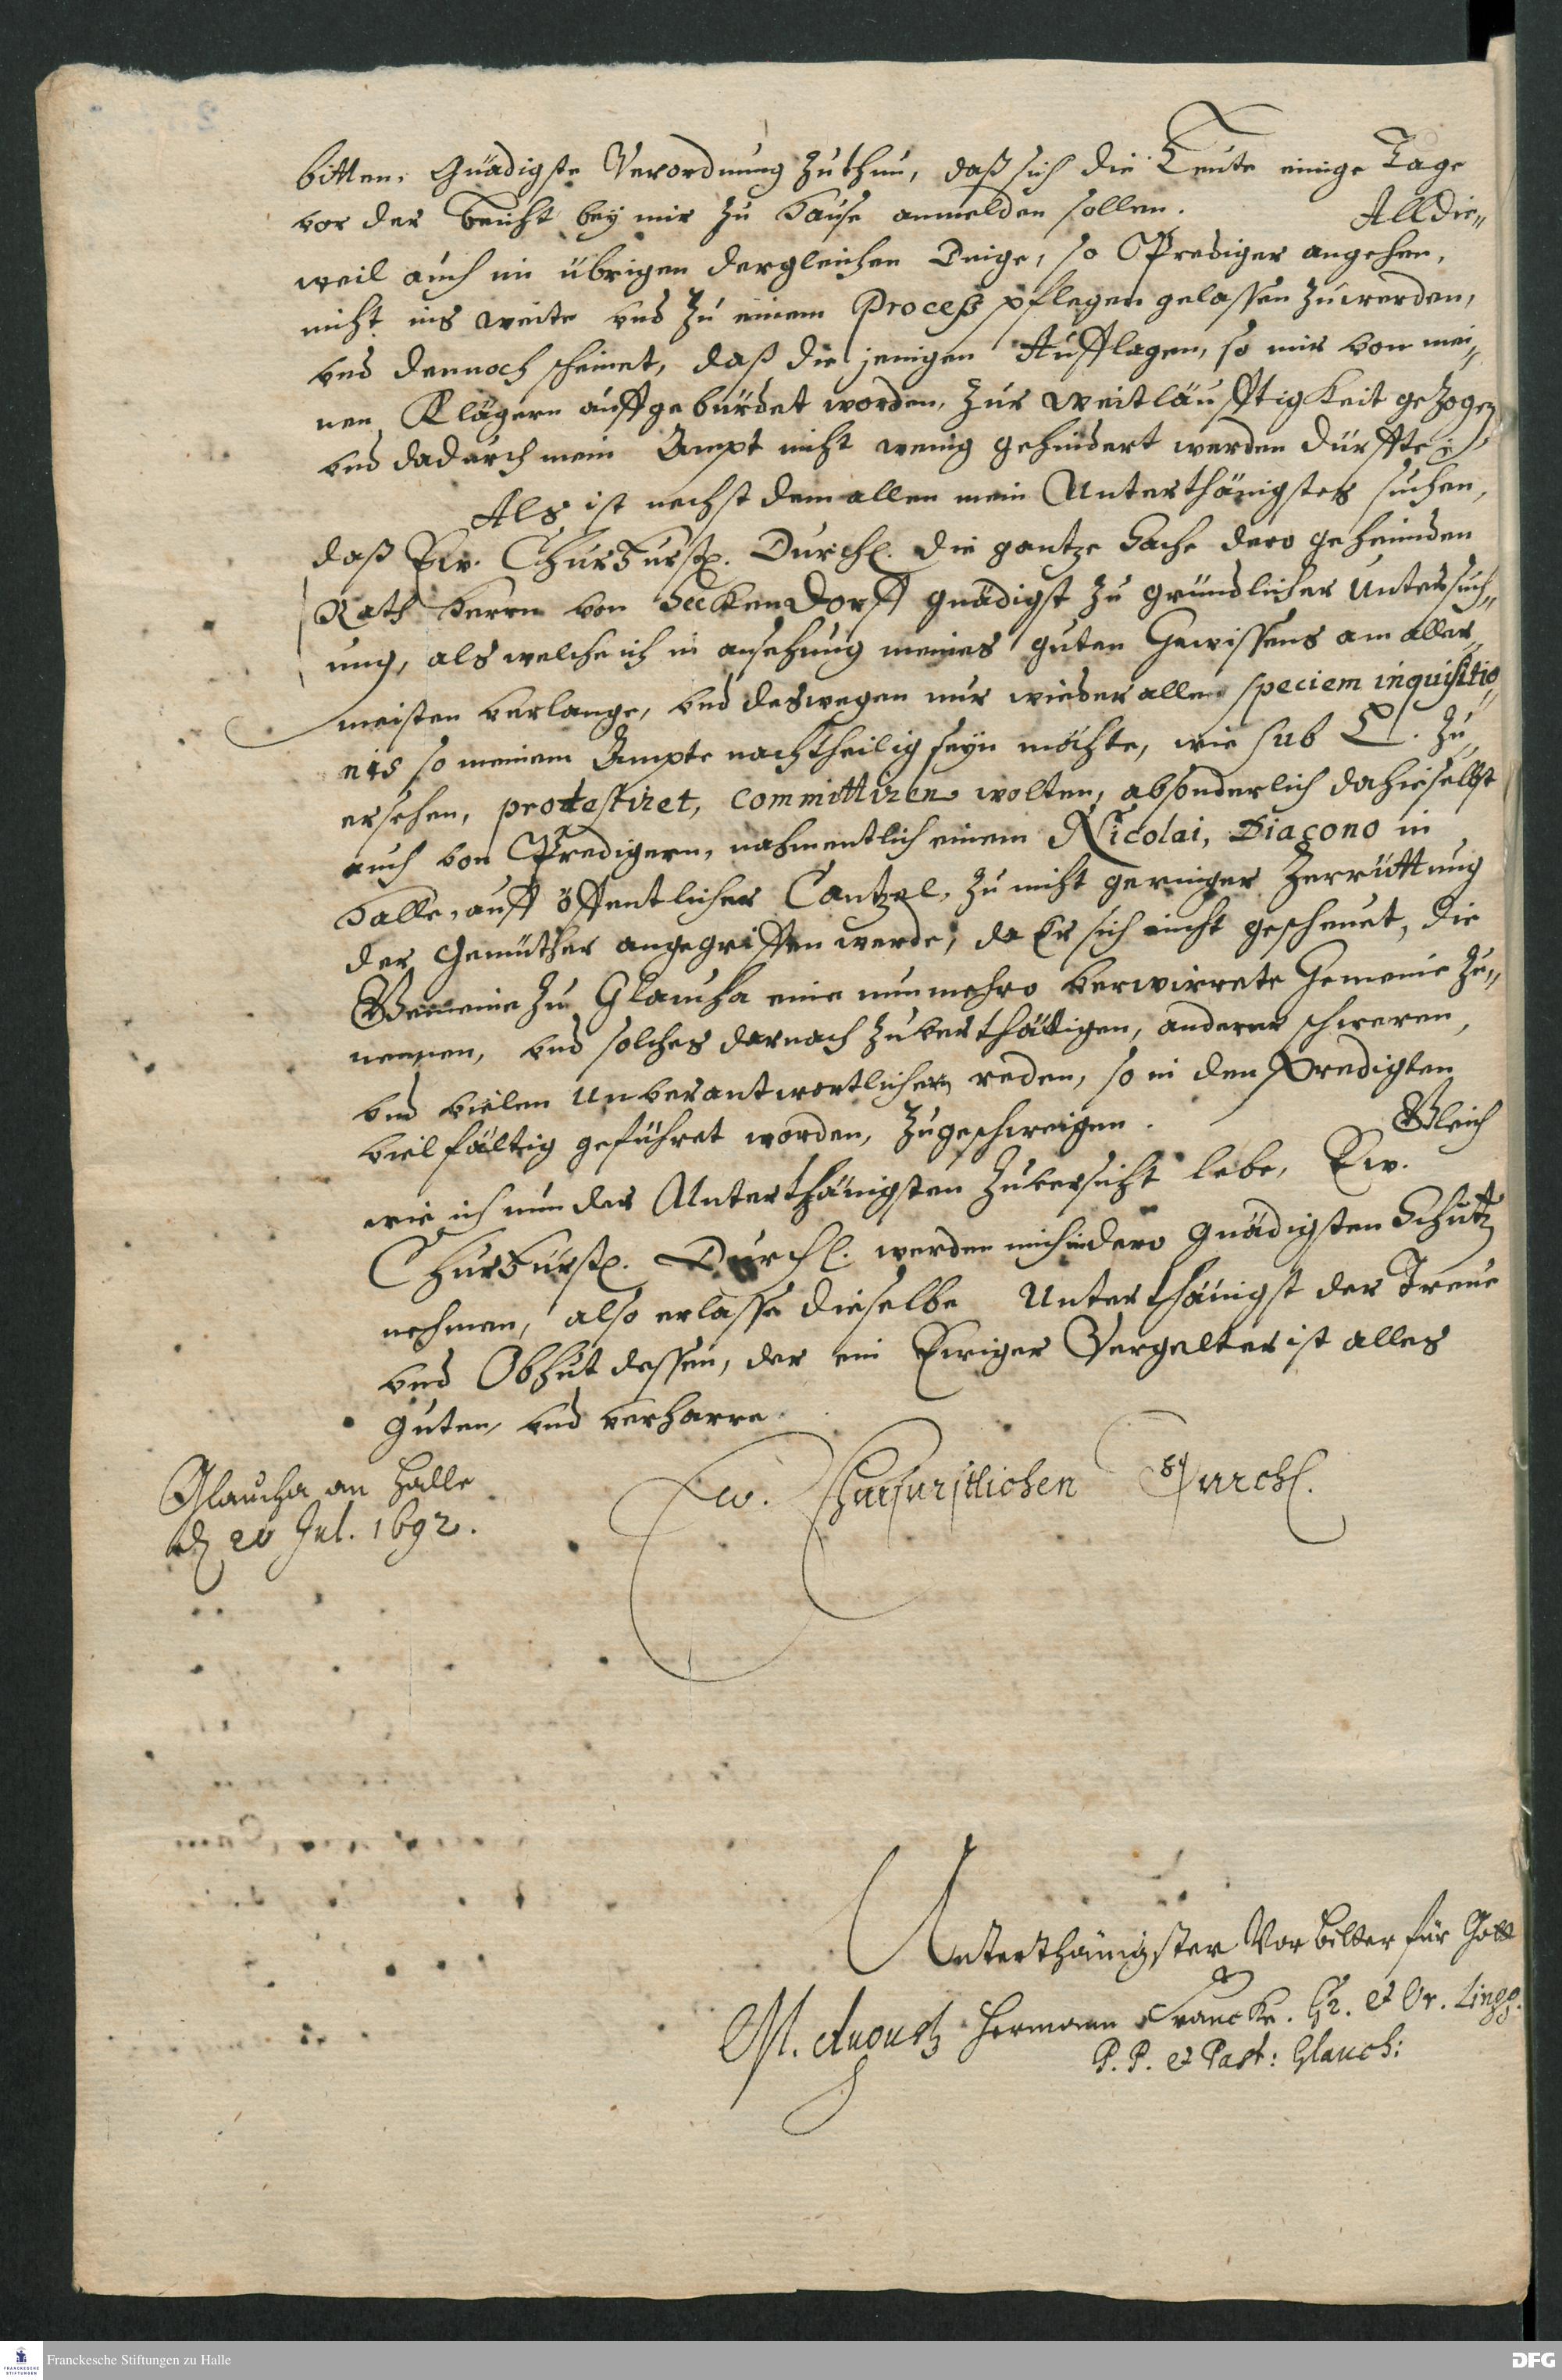 bitten, Gnädigste Verordnung zuthun, daß sich die Leute einige Tage
vor der Beicht bey mir zu Hause anmelden sollen. Alldie„
weil auch im übrigen dergleichen Dinge, so Prediger angehen,
nicht ins weite vnd zu einem Proceß pflegen gelassen zuwerden,
vnd dennoch scheinet, daß die jenigen Aufflagen, so mir von mei„
nen Klägern auffgebürdet worden, zur weitläufftigkeit gezogen
vnd dadurch mein Ampt nicht wenig gehindert werden dürffte
Als ist nechst dem allen mein Unterthänigstes suchen,
daß Ew. Churfürstl. Durchl. die gantze Sache dero geheimden
Rath Herrn von Seckendorff gnädigst zu gründlicher Untersuch„
ung, als welche ich in ansehung meines guten Gewissens am aller„
meisten verlange, vnd deswegen nur wieder alle speciem inquisitio„
nis so meinem Ampte nachtheilig seyn möchte, wie sub zu
ersehen, protestiret, committiren wolten, absonderlich dahieselbst
auch von Predigern, nahmentlich einem Nicolai, Diacono in
Halle, auff öffentlicher Cantzel, zu nicht geringer Zerrüttung
der Gemüther angegriffen werde, da Er sich nicht gescheuet, die
Gemeine zu Glaucha eine nunmehro verwirrete Gemeine zu„
nennen, vnd solches darnach zuverthätigen, anderer schweren,
vnd vielen unverantwortlichen reden, so in den Predigten
vielfältig geführet worden, zugeschweigen. Gleich
wie ich nun der Unterthänigsten Zuversicht lebe, Ew.
Churfürstl. Durchl. werden mich in dero Gnädigsten Schutz
nehmen, also erlasse dieselbe Unterthänigst der Treue
vnd Obhut dessen, der ein Ewiger Vergelter ist alles
guten, vnd verharre
Ew. Churfürstlichen Durchl.
Glaucha an Halle
d 20 Jul. 1692.
Unterthänigster Vorbitter für Gott
M. August Hermann Francke. Gr. et Or. Lingg.
P. P. et Past: Glauch:
Franckesche Stiftungen zu Halle
DFG